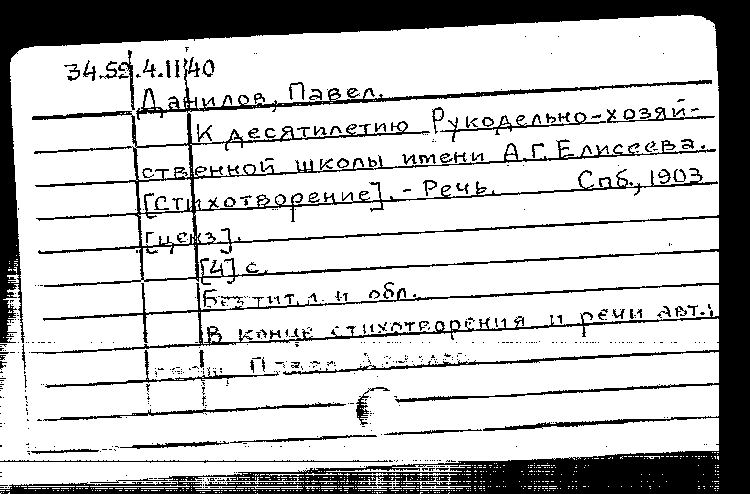 34.59.4.11/40
Данилов, Павел.
К десятилетию Рукодельно-хозяй-
ственной школы имени А.Г. Елисеева.
[Стихотворение]. - Речь. Спб., 1903
[ценз].
[4] с.
Без тит. л. и обл.
В конце стихотворения и речи авт.:
Павел Данилов.